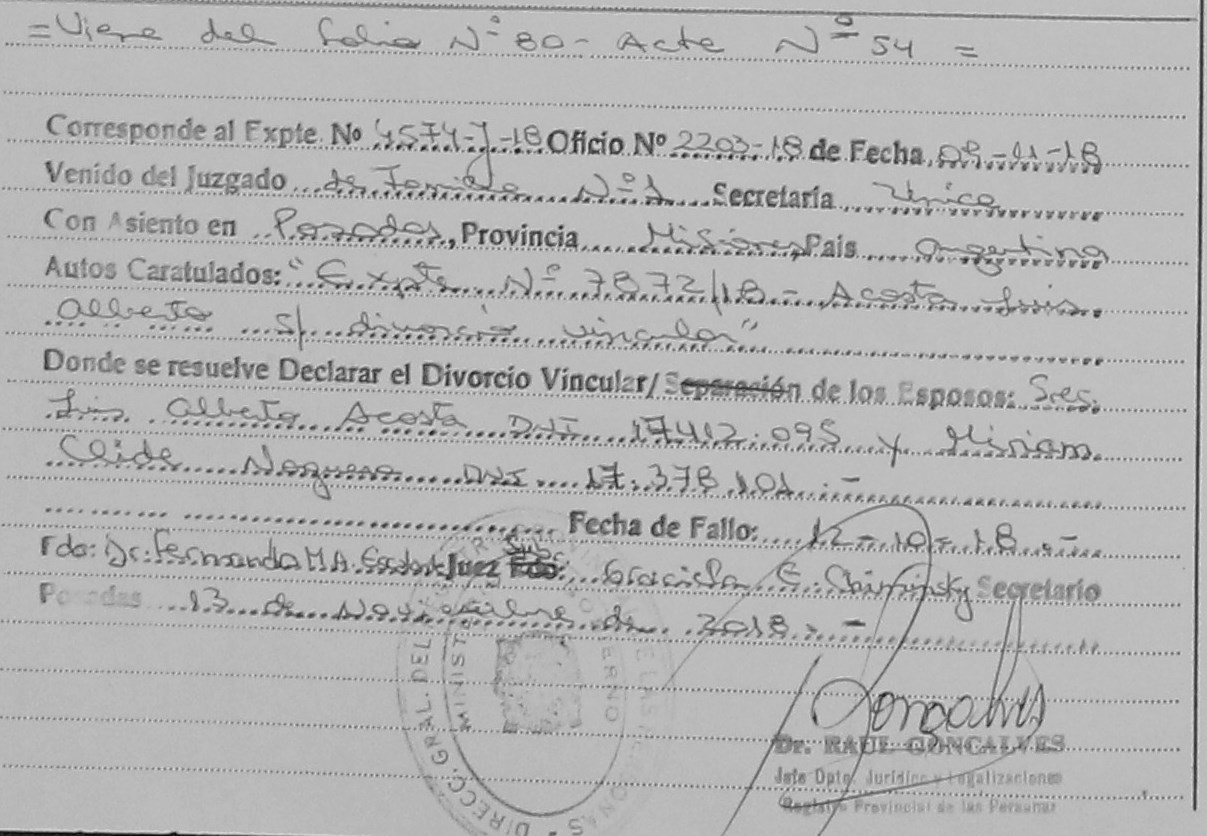 = Viene del folio Nº 80 - Acta Nº 54 =
Corresponde al Expte. Nº 4574-J-18 Oficio Nº 2203-18 de Fecha 09-11-18
Venido del Juzgado de Familia Nº 1 Secretaría Unica
Con Asiento en Posadas, Provincia Misiones País Argentina
Autos Caratulados: "Expte Nº 7872/18 - Acosta Luis
Alberto s/ divorcio vincular"
Donde se resuelve Declarar el Divorcio Vincular/ Separación de los Esposos: Sres.
Luis Alberto Acosta DNI 17.412.095 y Miriam
Noguera DNI 17.378.101.-
Fecha de Fallo: 12-10-18.-
Fdo: Dr. Fernando M.A. Juez Subr. Fdo: Graciela E. Secretario
Posadas 13 de Noviembre de 2018.-
DIRECC. GRAL. DEL REGISTRO PROVINCIAL DE LAS PERSONAS
MINIST GOBIERNO
Goncalves
Dr. RAUL GONCALVES
Jefe Dpto. Jurídico y Legalizaciones
Registro Provincial de las Personas